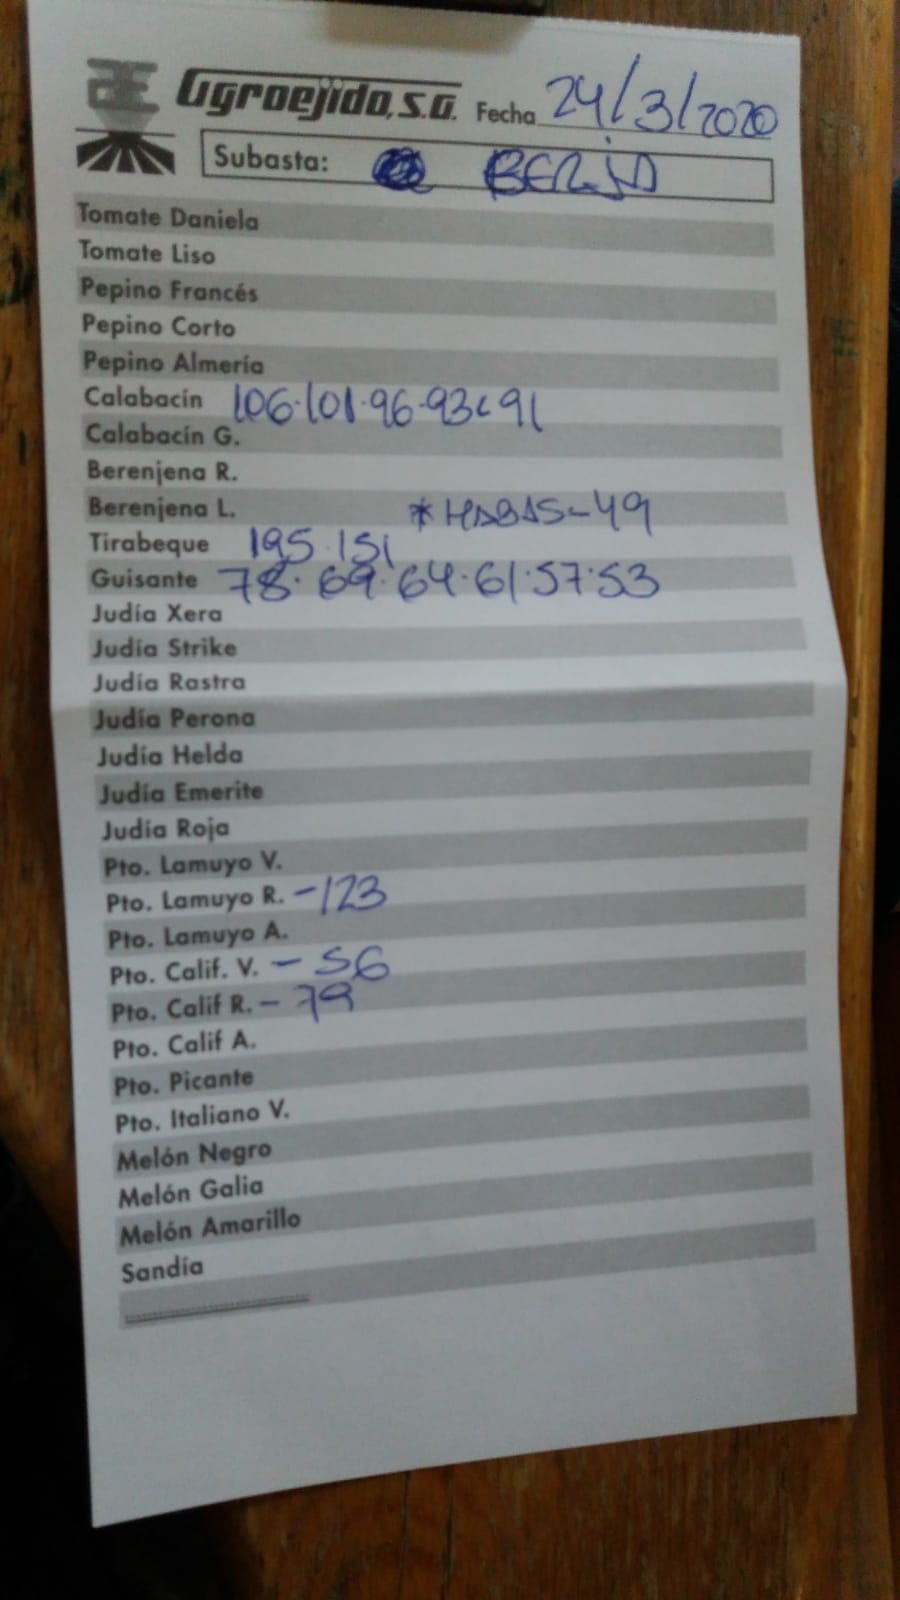 Agroejido, S.A. Fecha 24/3/2020
Subasta: BERJA
Tomate Daniela
Tomate Liso
Pepino Francés
Pepino Corto
Pepino Almería
Calabacín 106·101·96·93<91
Calabacín G.
Berenjena R.
Berenjena L. *HABAS-49
Tirabeque 195·151
Guisante 78·69·64·61·57·53
Judía Xera
Judía Strike
Judía Rastra
Judía Perona
Judía Helda
Judía Emerite
Judía Roja
Pto. Lamuyo V.
Pto. Lamuyo R. -123
Pto. Lamuyo A.
Pto. Calif. V. - 56
Pto. Calif R. - 79
Pto. Calif A.
Pto. Picante
Pto. Italiano V.
Melón Negro
Melón Galia
Melón Amarillo
Sandía